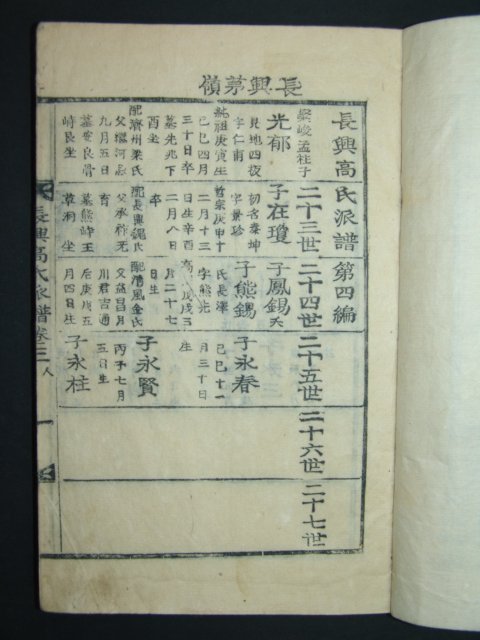 長興茅嶺
長興高氏派譜第四編
二十三世
二十四世
二十五世
二十六世
二十七世
峻孟柱子
光郁
字仁甫
純祖庚寅生
己巳四月
三十日卒
墓先兆下
酉坐
配濟州梁氏
九月五日
良骨
峙艮坐
子在瓊
初名泰坤
字景珍
哲宗庚申十
二月十三
日生辛酉
二月八日
卒
配長興魏氏
父承
墓熊峙王
草洞 坐
子鳳錫夭
子熊錫
氏長澤
字熊光
戊戌三
月二十七
日生
配清風金氏
父益昌月
川君吉通
后庚戌五
月四日生
子永春
己巳十一
月三十日
生
子永賢
丙子七月
五日生
子永柱
長興高氏派譜卷三 人
一